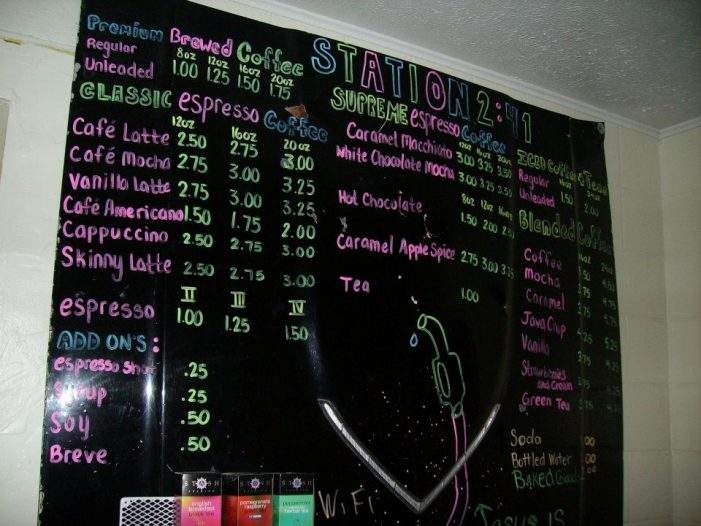 STATION 2:41
Premium Brewed Coffee
8oz 12oz 16oz 20oz
Regular
Unleaded 1.00 1.25 1.50 1.75
CLASSIC espresso Coffee
12oz 16oz 20oz
Café Latte 2.50 2.75 3.00
Café Mocha 2.75 3.00 3.25
Vanilla Latte 2.75 3.00 3.25
Café Americano 1.50 1.75 2.00
Cappuccino 2.50 2.75 3.00
Skinny Latte 2.50 2.75 3.00
II III IV
espresso 1.00 1.25 1.50
ADD ON'S:
espresso shot .25
Syrup .25
Soy .50
Breve .50
SUPREME espresso Coffee
Caramel Macchiato 3.00 3.25 3.50
White Chocolate Mocha 3.00 3.25 3.50
8oz 12oz 16oz
Hot Chocolate 1.50 2.00
Caramel Apple Spice 2.75 3.00
Tea 1.00
Iced Coffee & Teas
Regular
Unleaded 1.50 2.00
Blended Coffee
Coffee
Mocha
Caramel
Java Chip
Vanilla
Strawberries
and Cream
Green Tea
Soda
Bottled Water
Baked
WiFi
Jesus is
STASH
STASH
STASH
english
breakfast
pomegranate
raspberry